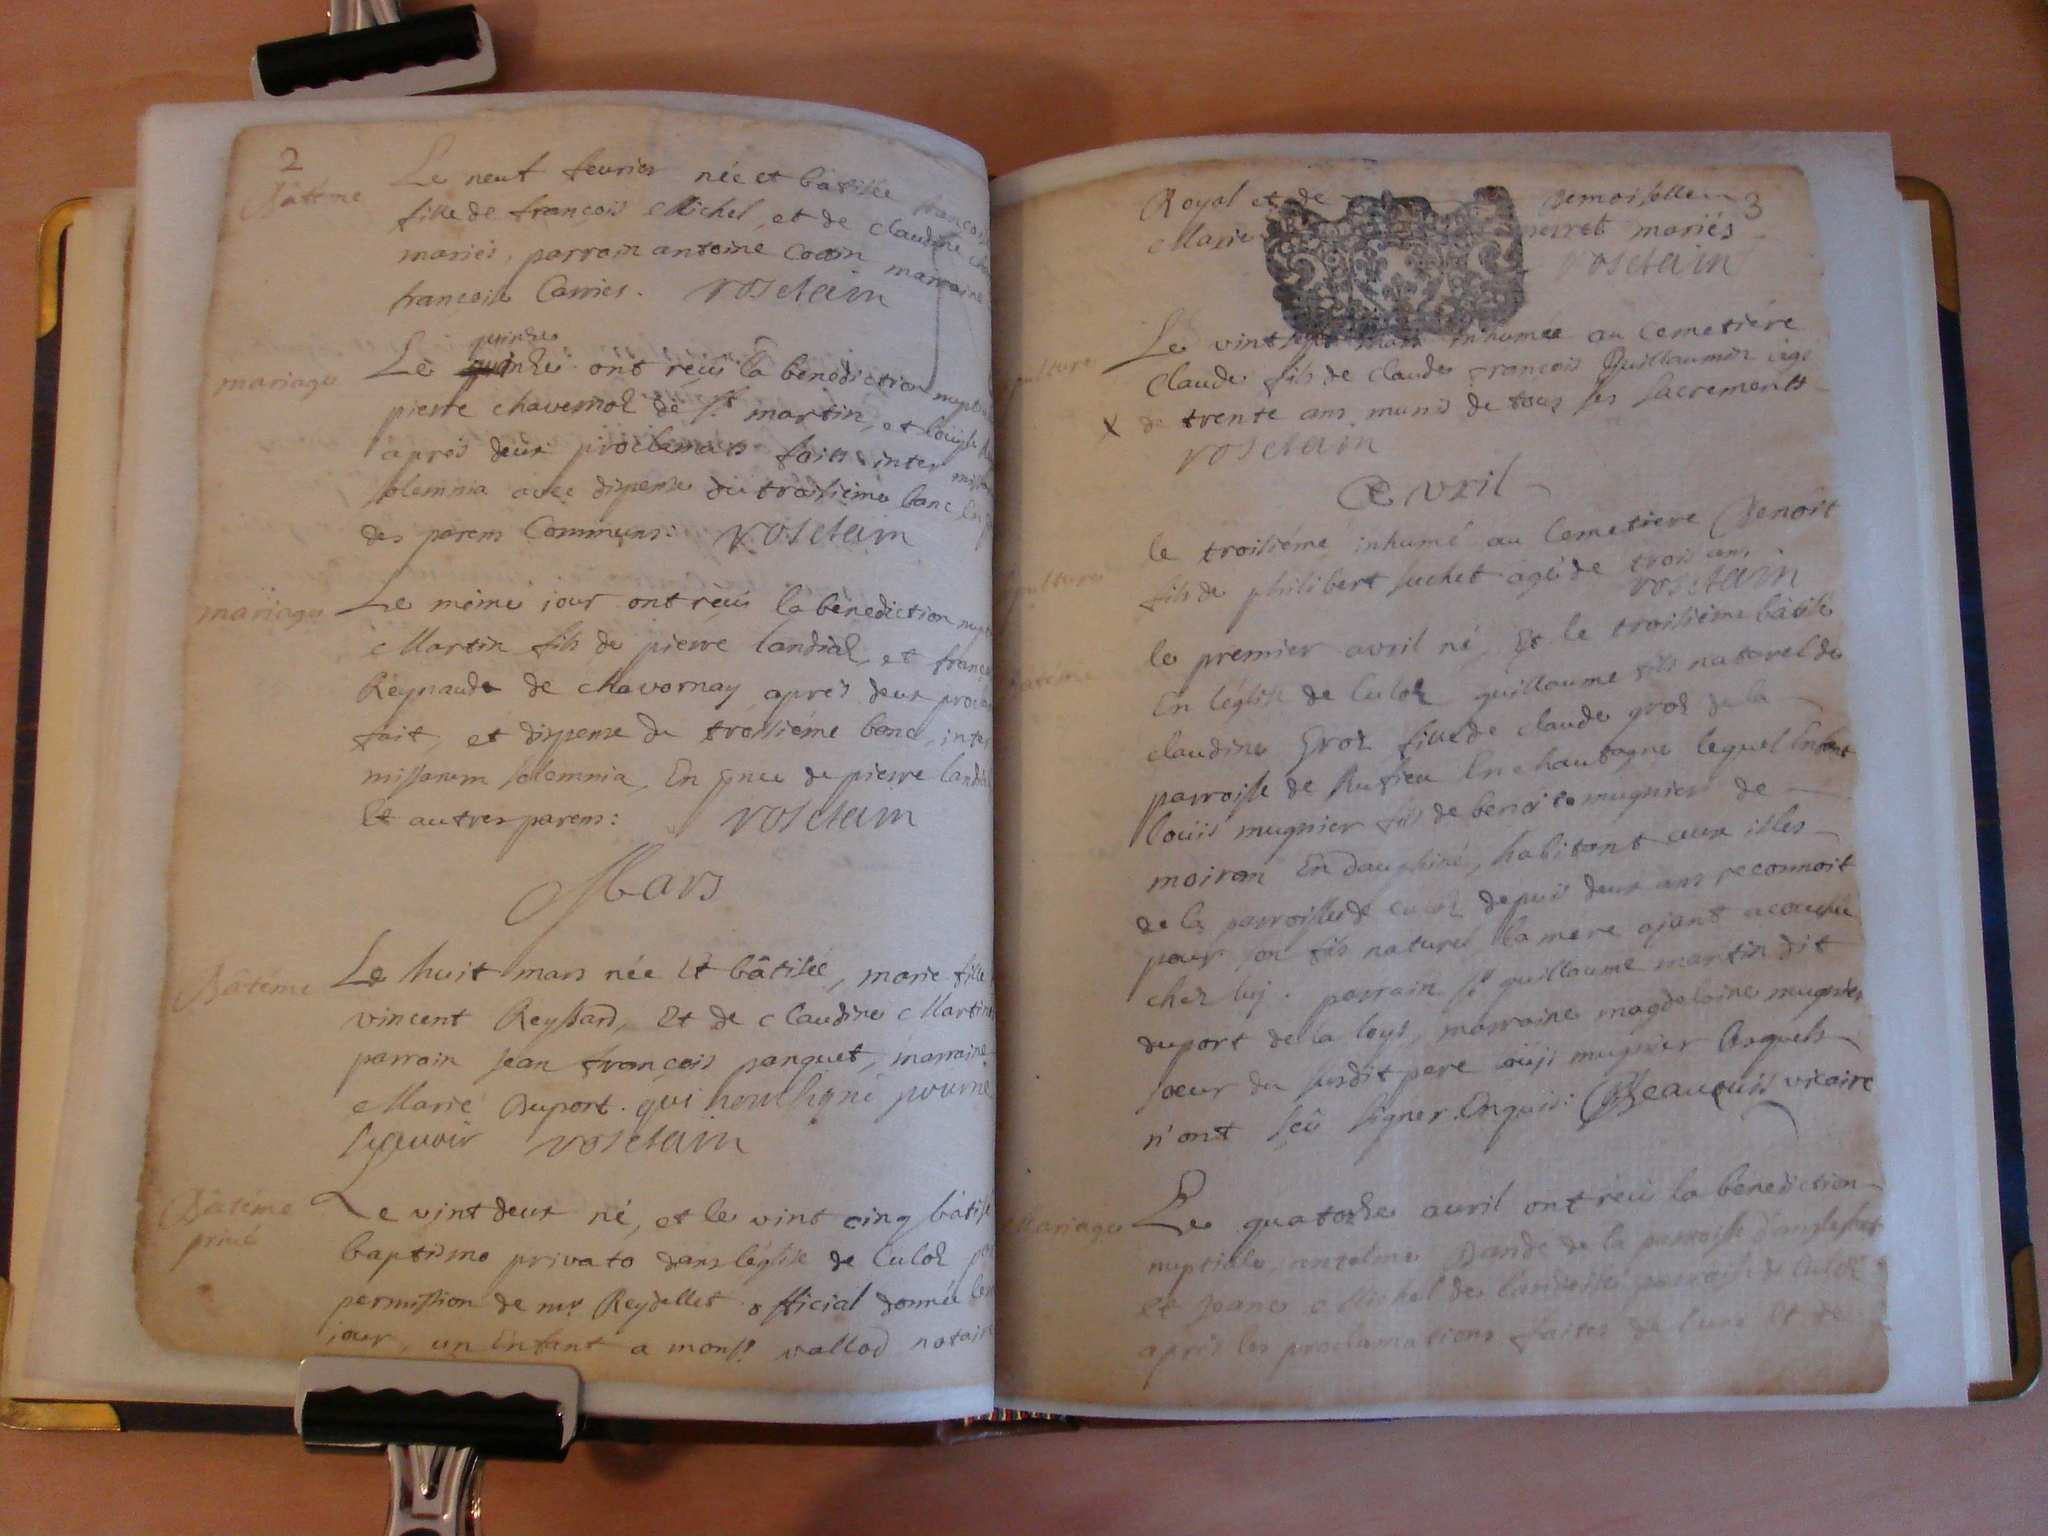 2
Bâtéme
Le neuf feurier née et bâtisée françoise
fille de françois Michel, et de claudine
mariés, parrain antoine Cocin marraine
françoise Carrier. rostaim
quinze
mariage
Le ont reçû la bénédiction nupt
pierre chavernoz de St martin, et louise
après deux proclamats faits inter missar
solemnia avec dispense du troisiéme banc En
des parens Communs: rostaim
mariage
Le méme jour ont reçû la bénédiction nupt
Martin fils de pierre landiaz, et franç
Reynaude de chavornay après deux procla
fait, et dispense du troisiéme banc, inter
missarum solemnia, En pnce de pierre land
Et autres parens: rostaim
Mars
Bâtéme
Le huit mars née Et bâtisée, marie fille
vincent Reyssard, Et de claudine Martin
parrain Jean françois panquet, marraine
Marie Duport. qui nont signé pour ne
sçavoir rostaim
Bâtéme
privé
Le vint deux né, et le vint cinq bâtisé
baptismo privato dans léglise de Culoz par
permission de mr Reydellet official donnée le
jour, un Enfant a monsr vallod notaire
3
Royal et de Demoiselle
Marie perret mariés
rostaim
pulture
Le vint sept mars inhumée au Cemetiére
Claude fils de claude françois Guillaumin âgé
X de trente ans muni de tous ses sacrements
rostaim
Avril
pulture
le troisiéme inhumé au Cemetiere Benoit
fils de philibert suchet agé de trois ans
rostaim
Batéme
le premier avril né, Et le troisiéme bâtisé
En léglise de Culoz guillaume fils naturel de
claudine Groz fille de claude groz de la
parroisse de Rufieu En chautagne lequel Enfant
louis mugnier fils de benoit mugnier de
moiran En dauphiné, habitant aux isles
de la parroisse de culoz depuis deux ans reconnoit
pour son fils naturel la mére ajant acouchée
chez luj. parrain Sr guillaume martin dit
duport de la loys, marraine magdelaine mugnier
soeur du susdit pere loüis mugnier lesquels
n'ont sçû signer Enquis: Beauouis vicaire
Mariage
Le quatorze auril ont reçû la benediction
nuptiale, antelme Bande de la parroisse d'anglefort
et Jeane Michel de landaise parroisse de Culoz
aprés les proclamations faites de l'une Et de